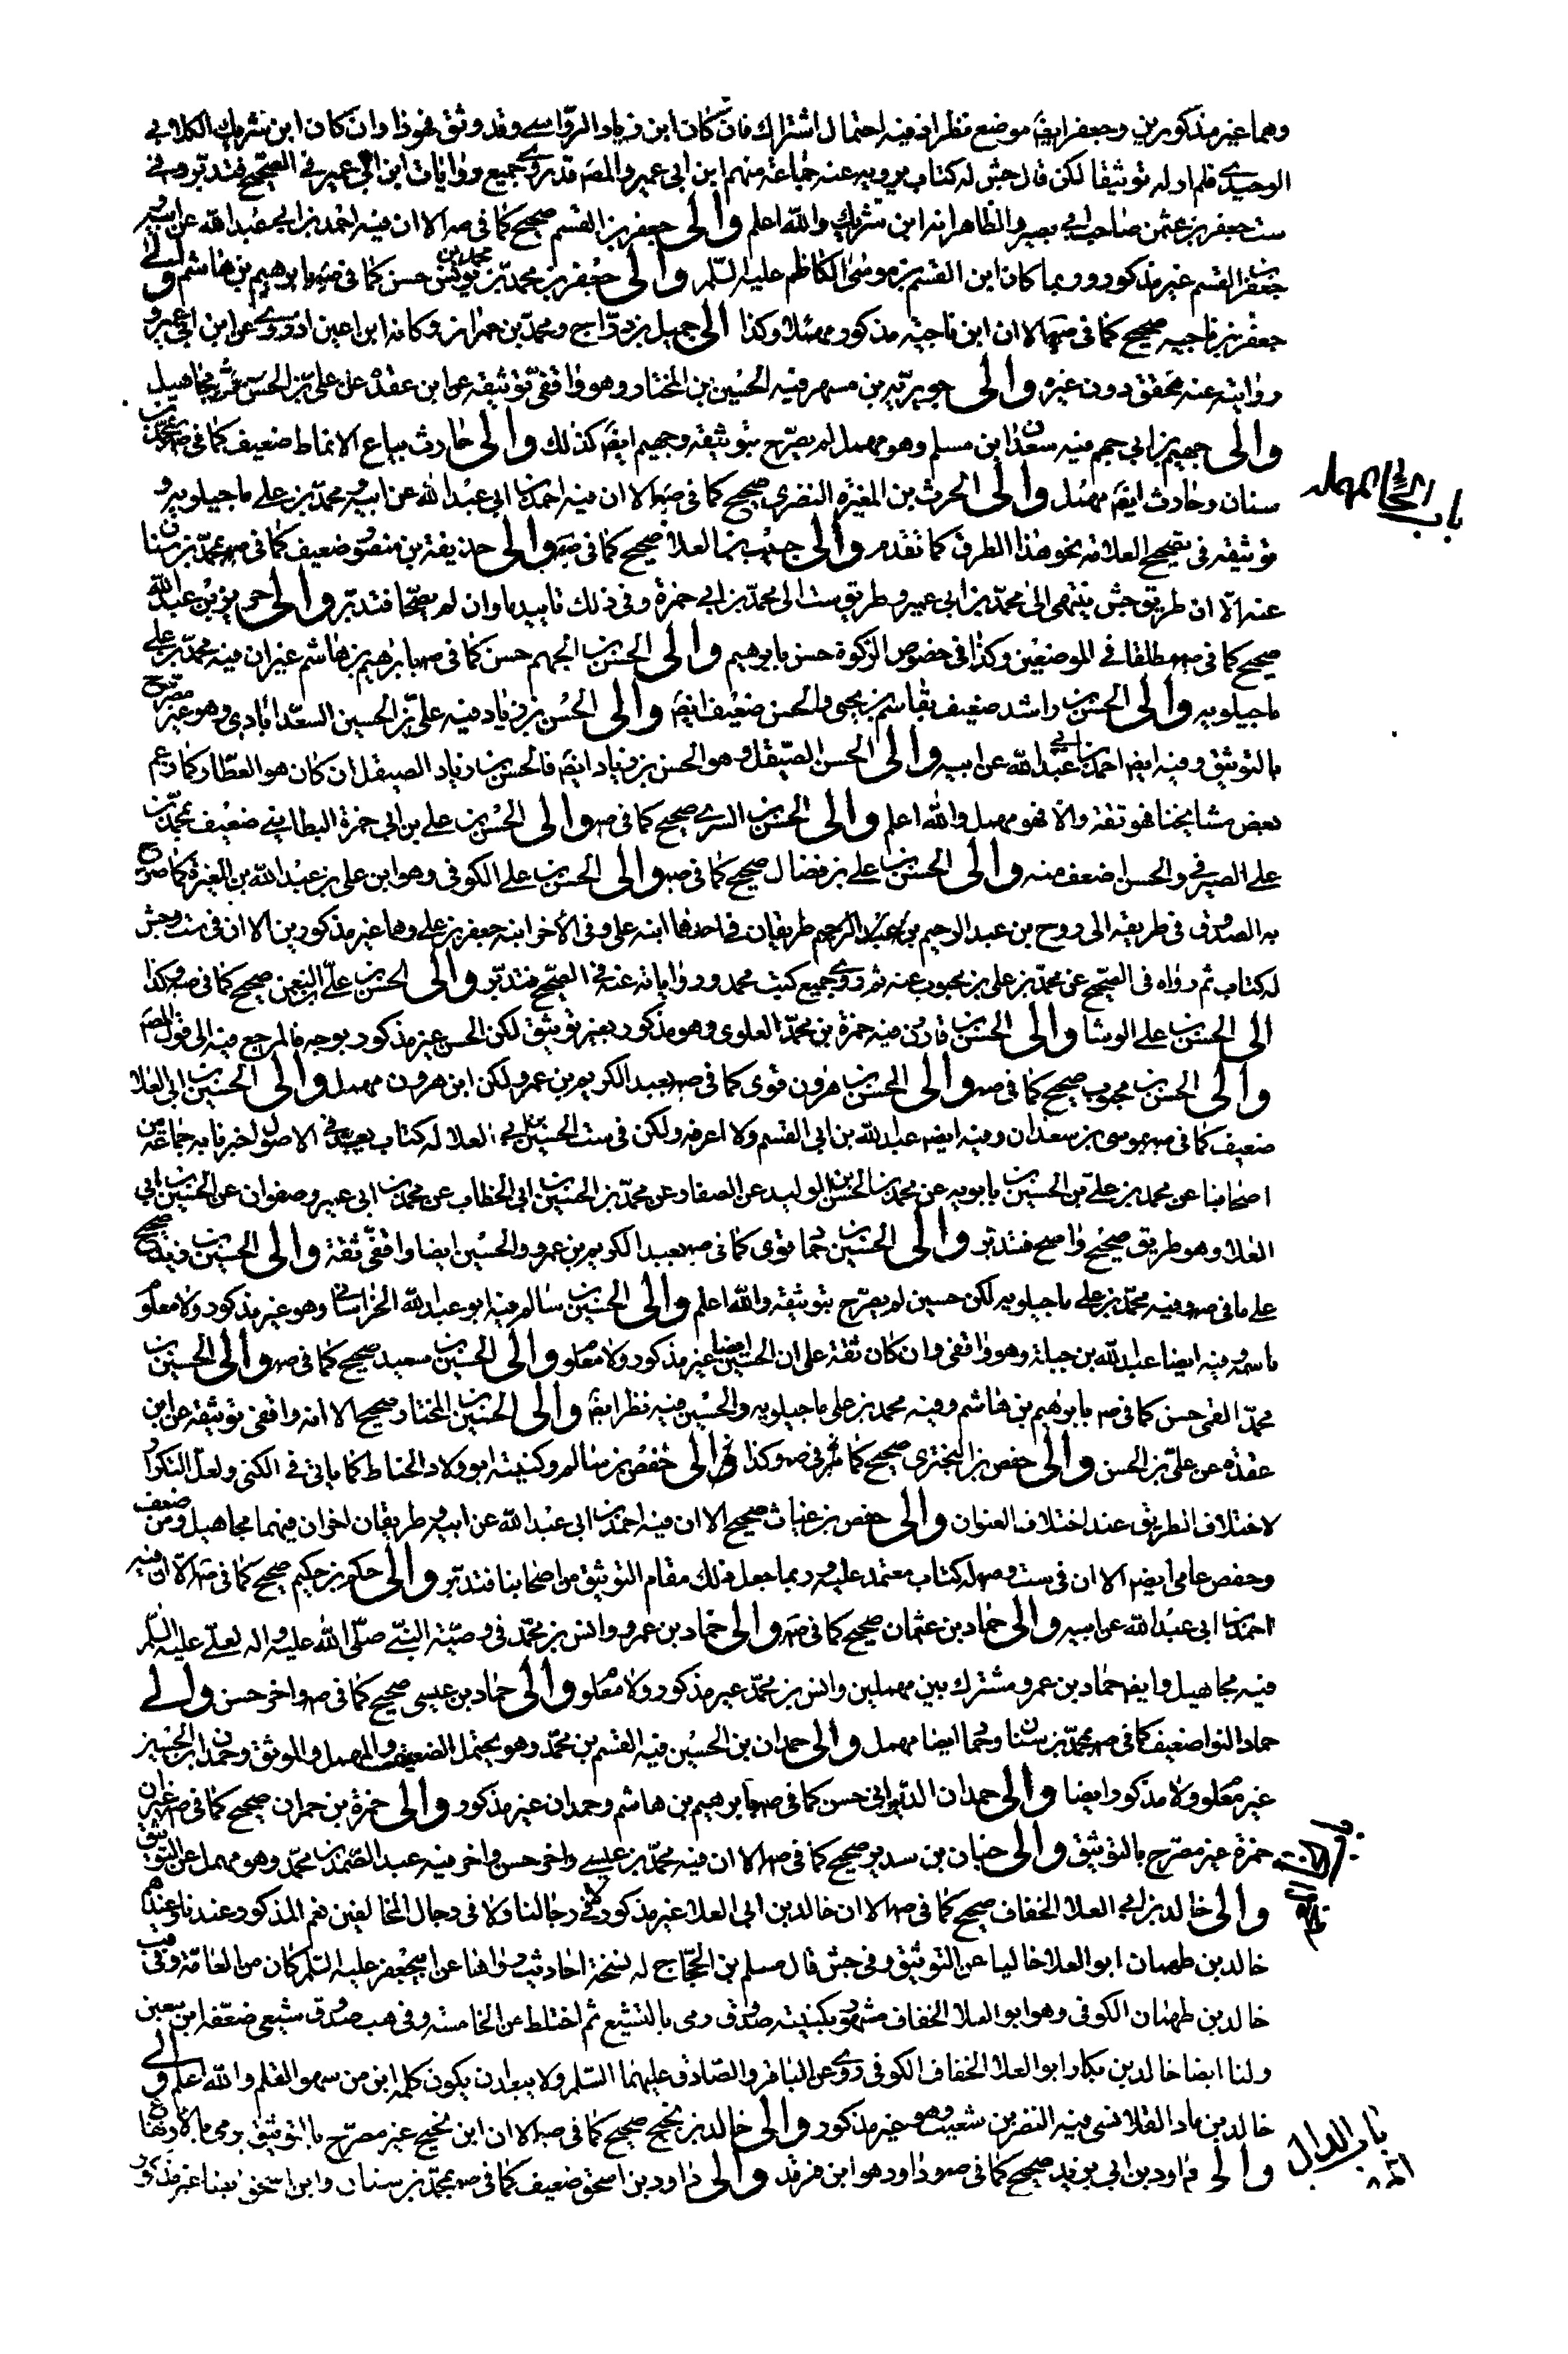 وهما غير مذكورين وجعفر ايضا موضع نظر اذ فيه احتمال اشتراك فان كان ابن زياد الرواسى وقد وثق فهو ذا وان كان ابن شريك الكلابى
الوحيدى فلم ار له توثيقا لكن قال جش له كتاب يرويه عنه جماعة منهم ابن ابى عمير والمص قد روى جميع روايات ابن ابى عمير فى الصحيح فتدبر وفى
ست جعفر بن عثمن صاحب ابى بصير والظاهر انه ابن شريك والله اعلم والى جعفر بن القسم صحيح كما فى صه الا ان فيه احمد بن ابى عبد الله عن ابيه و
جعفر بن القسم غير مذكور وربما كان ابن القسم بن موسى الكاظم عليه السلم والى جعفر بن محمد بن يونس حسن كما فى صه بابرهيم بن هاشم والى
جعفر بن ناجيه صحيح كما فى صه الا ان ابن ناجيه مذكور مهملا وكذا الى جميل بن دراج ومحمد بن حمران وكانه ابن اعين اذ روى عن ابن ابى عمير و
روايته عنه محقق دون غيره والى جويرية بن مسهر فيه الحسين بن المختار وهو واقفى توثيقه عن ابن عقده عن على بن الحسن ثم مجاهيل
والى جهيم بن ابى جهم فيه سعدان ابن مسلم وهو مهمل لم يصرح بتوثيقه وجهيم ايضا كذلك والى حارث بياع الانماط ضعيف كما فى صه بمحمد بن
باب الحاء المهملة
سنان وحارث ايضا مهمل والى الحرث بن المغيرة النضرى صحيح كما فى صه الا ان فيه احمد بن ابى عبد الله عن ابيه ومحمد بن على ماجيلويه و
توثيقه فى تصحيح العلامة نحو هذا الطرق كما تقدم والى حبيب بن المعلا صحيح كما فى صه والى حذيفة بن منصور ضعيف كما فى صه بمحمد بن سنان
عنه الا ان طريق جش ينتهى الى محمد بن ابى عمير وطريق ست الى محمد بن ابى حمزة وفى ذلك تاييد ما وان لم يصحا فتدبر والى حريز بن عبد الله
صحيح كما فى صه مطلقا فى الموضعين وكذا فى خصوص الزكوة حسن بابرهيم والى الحسن بن الجهم حسن كما فى صه بابرهيم بن هاشم غير ان فيه محمد بن على
ماجيلويه والى الحسن بن راشد ضعيف بقاسم بن يحيى والحسن ضعيف ايضا والى الحسن بن زياد فيه على بن الحسين السعدابادى وهو غير مصرح
بالتوثيق وفيه ايضا احمد بن ابى عبد الله عن ابيه والى الحسن الصيقل وهو الحسن بن زياد ايضا فالحسن بن زياد الصيقل ان كان هو العطار كما زعم
بعض مشايخنا فهو ثقة والا فهو مهمل والله اعلم والى الحسن بن السرى صحيح كما فى صه والى الحسن بن على بن ابى حمزة البطاينى ضعيف بمحمد بن
على الصيرفى والحسن اضعف منه والى الحسن بن على بن فضال صحيح كما فى صه والى الحسن بن على الكوفى وهو ابن على بن عبد الله بن المغيرة كما صرح
به الصدوق فى طريقه الى روح بن عبد الرحيم بن عبد الرحيم طريقان فى احدهما ابنه على وفى الاخر ابنه جعفر بن على وهما غير مذكورين الا ان فى ست وجش
له كتاب ثم رواه فى الصحيح عن محمد بن على بن محبوب عنه ثم روى جميع كتب محمد ورواياته عنه فى الصحيح فتدبر والى الحسن بن على بن النعمن صحيح كما فى صه وكذا
الى الحسن بن على الوشا والى الحسن بن قارن فيه حمزة بن محمد العلوى وهو مذكور بغير توثيق لكن الحسن غير مذكور بوجه فالمرجع فيه الى قول المص
والى الحسن بن محبوب صحيح كما فى صه والى الحسن بن هرون قوى كما فى صه بعبد الكريم بن عمرو لكن ابن هرون مهمل والى الحسين بن ابى العلا
ضعيف كما فى صه بموسى بن سعدان وفيه ايضا عبد الله بن ابى القسم ولا اعرفه ولكن فى ست الحسين بن ابى العلا له كتاب يعد فى الاصول اخبرنا به جماعة من
اصحابنا عن محمد بن على بن الحسين بن بابويه عن محمد بن الحسن بن الوليد عن الصفار عن محمد بن الحسين بن ابى الخطاب عن محمد بن ابى عمير وصفوان عن الحسين بن ابى
العلا وهو طريق صحيح واضح فتدبر والى الحسين بن حماد قوى كما فى صه بعبد الكريم بن عمرو والحسين ايضا واقفى ثقة والى الحسين بن زيد صحيح
على ما فى صه وفيه محمد بن على ماجيلويه لكن حسين لم يصرح بتوثيقه والله اعلم والى الحسين بن سالم فيه ابو عبد الله الخراسانى وهو غير مذكور ولا معلوم
باسمه وفيه ايضا عبد الله بن جبلة وهو واقفى وان كان ثقة على ان الحسين ايضا غير مذكور ولا معلوم والى الحسين بن سعيد صحيح كما فى صه والى الحسين بن
محمد القمى حسن كما فى صه بابرهيم بن هاشم وفيه محمد بن على ماجيلويه والحسين فيه نظر ايضا والى الحسين بن المختار صحيح الا انه واقفى توثيقه عن ابن
عقده عن على بن الحسن والى حفص بن البخترى صحيح كما مر فى صه وكذا والى حفص بن سالم وكنيته ابو ولاد الحناط كما ياتى فى الكنى ولعل التكرار
لاختلاف الطريق عند اختلاف العنوان والى حفص بن غياث صحيح الا ان فيه احمد بن ابى عبد الله عن ابيه وطريقان اخران فيهما مجاهيل ومن ضعف
وحفص عامى ايضا الا ان فى ست وصه له كتاب معتمد عليه وربما جعل ذلك مقام التوثيق من اصحابنا فتدبر والى حكم بن حكيم صحيح كما فى صه الا ان فيه
احمد بن ابى عبد الله عن ابيه والى حماد بن عثمان صحيح كما فى صه والى حماد بن عمرو وانس بن محمد فى وصية النبى صلى الله عليه واله لعلى عليه السلم
فيه مجاهيل وايضا حماد بن عمرو مشترك بين مهملين وانس بن محمد غير مذكور ولا معلوم والى حماد بن عيسى صحيح كما فى صه واخر حسن والى
حماد النوا ضعيف كما فى صه بمحمد بن سنان وحماد ايضا مهمل والى حمدان بن الحسين فيه القسم بن محمد وهو يحتمل الضعيف والمهمل والموثق وحمدان بن الحسين
غير معلوم ولا مذكور ايضا والى حمدان الديوانى حسن كما فى صه بابرهيم بن هاشم وحمدان غير مذكور والى حمزة بن حمران صحيح كما فى صه غير ان
حمزة غير مصرح بالتوثيق والى حنان بن سدير صحيح كما فى صه الا ان فيه محمد بن عيسى واخر حسن واخر فيه عبد الصمد بن محمد وهو مهمل عن التوثيق
والى خالد بن ابى العلا الخفاف صحيح كما فى صه الا ان خالد بن ابى العلا غير مذكور لا فى رجالنا ولا فى رجال المخالفين نعم المذكور عندنا وعندهم
خالد بن طهمان ابو العلا خاليا عن التوثيق وفى جش قال مسلم بن الحجاج له نسخة احاديث رواها عن ابى جعفر عليه السلم كان من العامة وفى قب
خالد بن طهمان الكوفى وهو ابو العلا الخفاف مشهور بكنيته صدوق رمى بالتشيع ثم اختلط من الخامسة وفى هب صدوق شيعى ضعفه ابن معين
ولنا ايضا خالد بن بكار ابو العلا الخفاف الكوفى روى عن الباقر والصادق عليهما السلم ولا يبعد ان يكون كلمة ابن من سهو القلم والله اعلم والى
خالد بن ماد القلانسى فيه النضر بن شعيب وهو غير مذكور والى خالد بن نجيح صحيح كما فى صه الا ان ابن نجيح غير مصرح بالتوثيق يرمى بالارتفاع
باب الدال
والى داود بن ابى يزيد صحيح كما فى صه وداود هو ابن فرقد والى داود بن اسحق ضعيف كما فى صه بمحمد بن سنان وابن اسحق ايضا غير مذكور